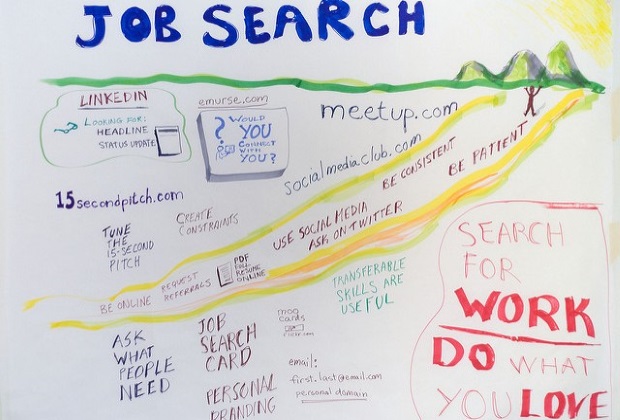 JOB SEARCH
LINKEDIN
LOOKING FOR:
HEADLINE
STATUS UPDATE
emurse.com
? WOULD
YOU
CONNECT
WITH
YOU?
meetup.com
socialmediaclub.com
BE CONSISTENT
BE PATIENT
15secondpitch.com
TUNE
THE
15-SECOND
PITCH
CREATE
CONSTRAINTS
USE SOCIAL MEDIA
ASK ON TWITTER
BE ONLINE
REQUEST
REFERRALS
PDF
FULL
RESUME
ONLINE
TRANSFERABLE
SKILLS ARE
USEFUL
ASK
WHAT
PEOPLE
NEED
JOB
SEARCH
CARD
PERSONAL
BRANDING
moo
cards
email:
first.last@email.com
personal domain
SEARCH
FOR
WORK
DO WHAT
YOU LOVE